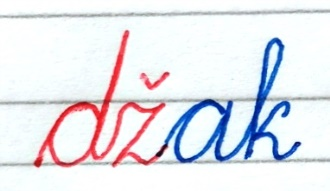 džak